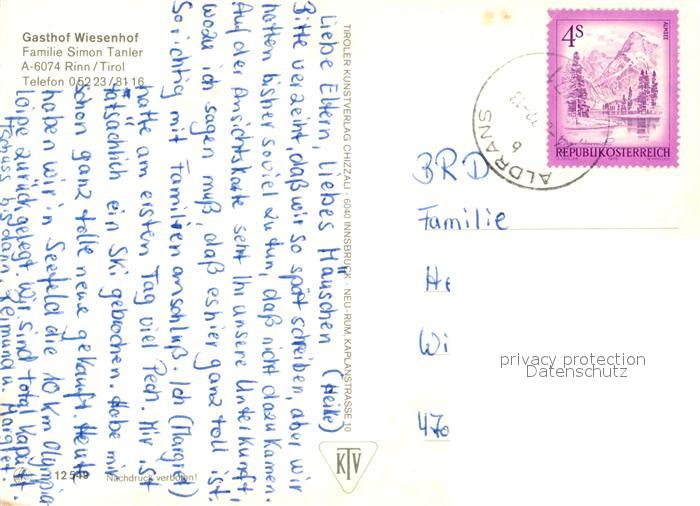 Gasthof Wiesenhof
Familie Simon Tanler
A-6074 Rinn/Tirol
Telefon 0 52 23 / 81 16
Liebe Eltern, Liebes Mäuschen (Heike)
Bitte verzeiht, daß wir so spät schreiben, aber wir
hatten bisher soviel zu tun, daß nicht dazu kamen.
Auf der Ansichtskarte seht Ihr unsere Unterkunft,
wozu ich sagen muß, daß es hier ganz toll ist.
So richtig mit Familienanschluß. Ich (Margret)
hatte am ersten Tag viel Pech. Mir ist
tatsächlich ein Ski gebrochen. Habe mir
schon ganz tolle neue gekauft. Heute
haben wir in Seefeld die 10 km Olympia
loipe zurückgelegt. Wir sind total kaputt.
Tschüss bis dann, Reimund u. Margret.
TIROLER KUNSTVERLAG CHIZZALI · 6040 INNSBRUCK · NEU-RUM, KAPLANSTRASSE 10
KTV
12 549 Nachdruck verboten!
4S
ALMSEE
REPUBLIK ÖSTERREICH
ALDRANS
BRD
Familie
He
Wi
470
privacy protection
Datenschutz